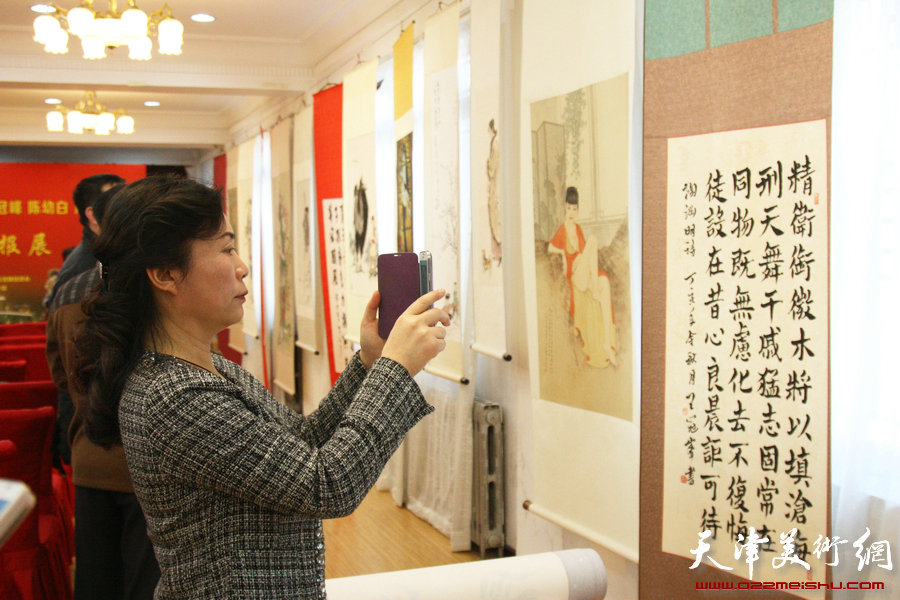 精衛銜微木將以填滄海
刑天舞干戚猛志固常在
同物既無慮化去不復悔
徒設在昔心良晨詎可待
陶淵明詩
冠峰 陈幼白
报展
天津美術網
www.022meishu.com